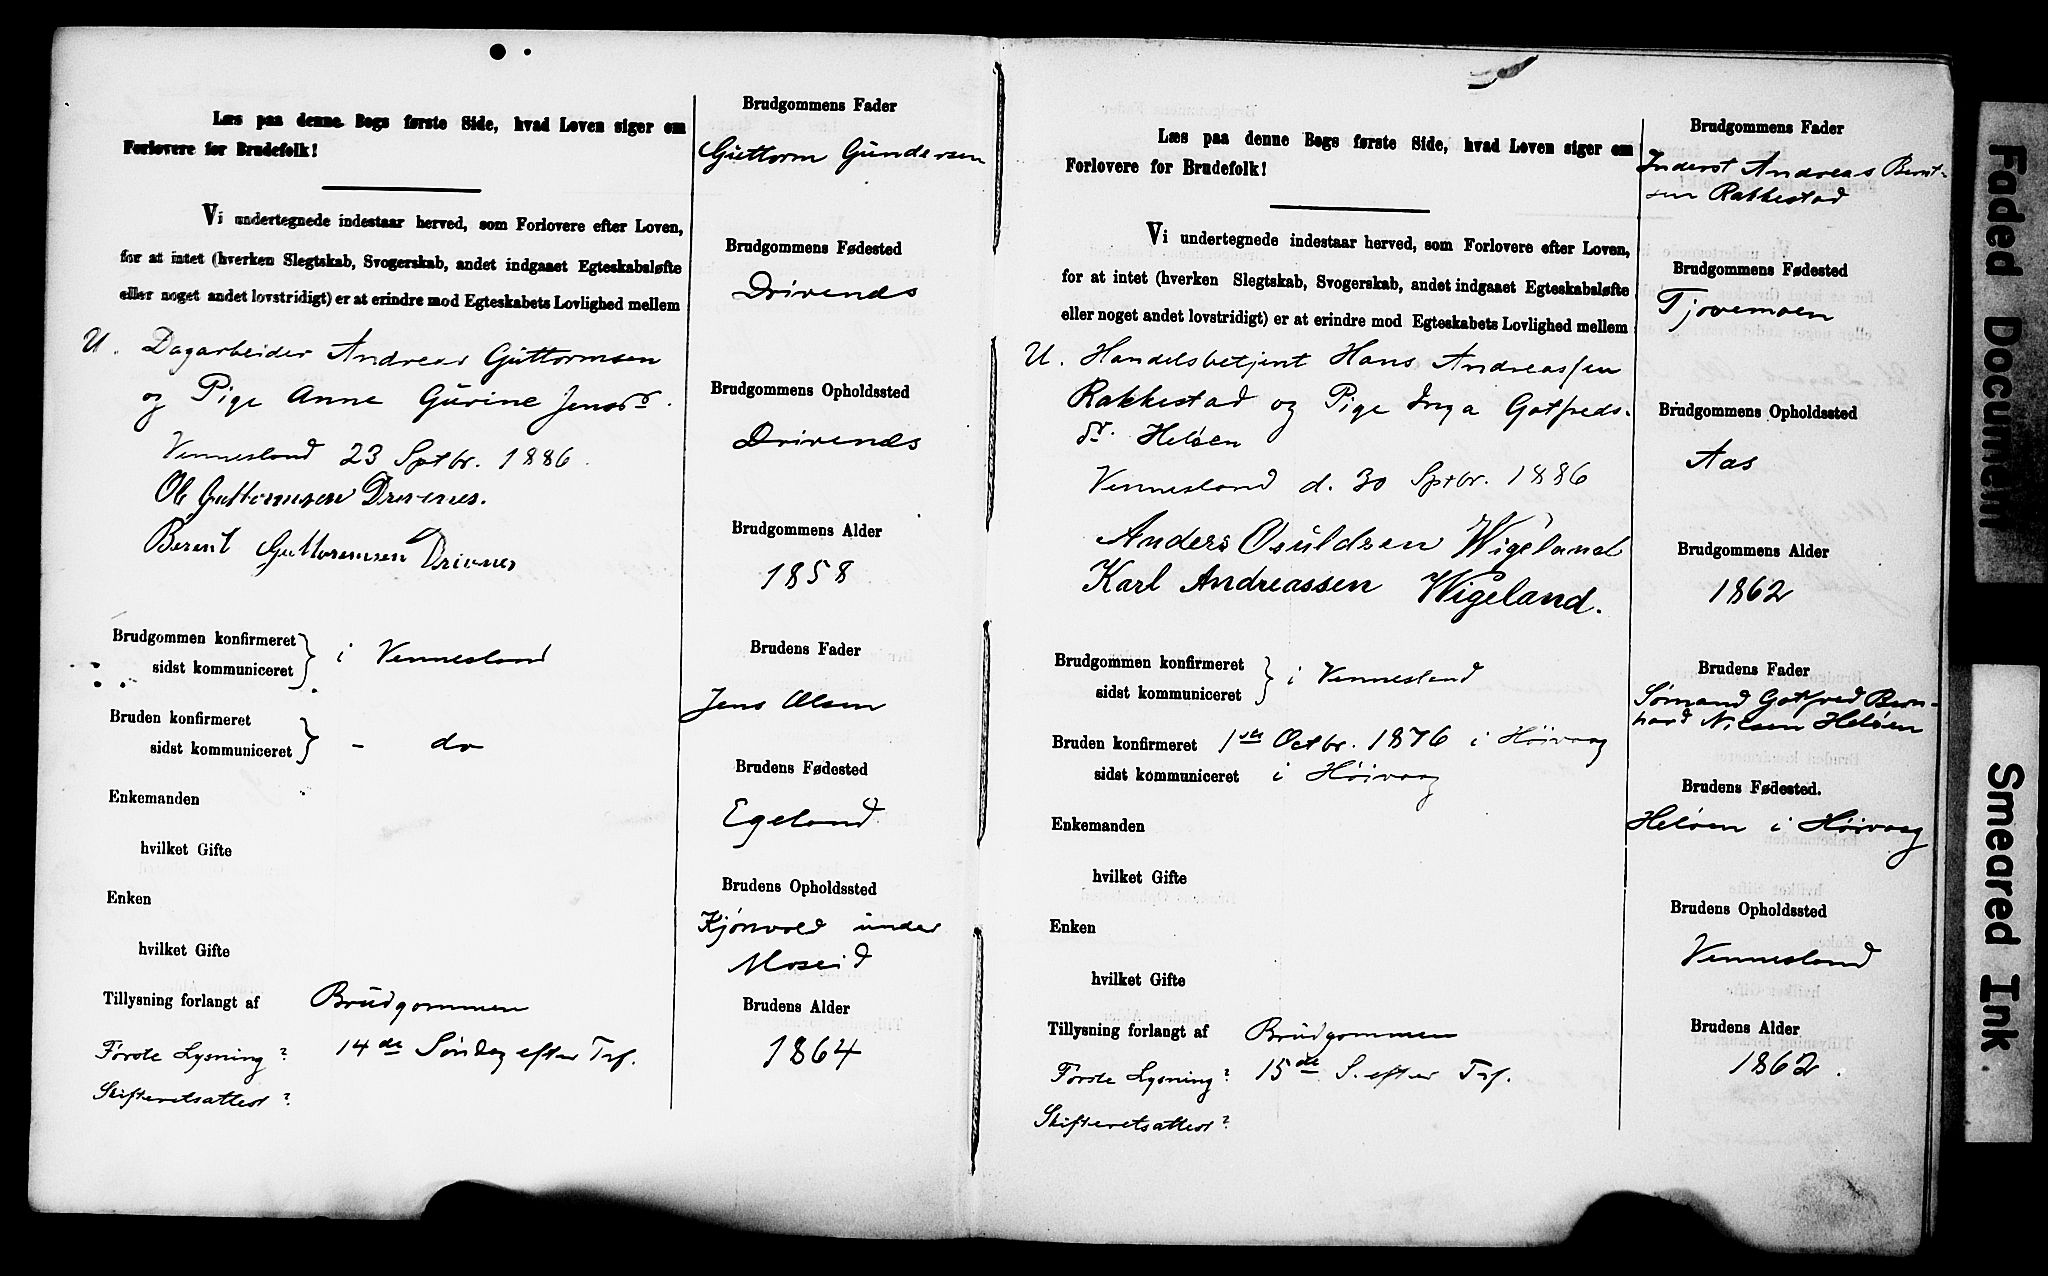 Læs paa denne Bogs første Side, hvad Loven siger om
Forlovere for Brudefolk!
Vi undertegnede indestaar herved, som Forlovere efter Loven,
for at intet (hverken Slegtskab, Svogerskab, andet indgaaet Egteskabsløfte
eller noget andet lovstridigt) er at erindre mod Egteskabets Lovlighed mellem
U. Dagarbeider Andreas Guttormsen
og Pige Anne Gurine Jensdr.
Vennesland 23 Sptbr. 1886.
Ol Guttormsen Drivenes.
Berent Guttoremsen Drivnes
Brudgommen konfirmeret
sidst kommuniceret } i Vennesland
Bruden konfirmeret
sidst kommuniceret } - do
Enkemanden
hvilket Gifte
Enken
hvilket Gifte
Tillysning forlangt af Brudgommen
Første Lysning? 14de Søndag efter Tref.
Skifteretsattest?
Brudgommens Fader
Guttorm Gundersen
Brudgommens Fødested
Drivenes
Brudgommens Opholdssted
Drivenes
Brudgommens Alder
1858
Brudens Fader
Jens Olsen
Brudens Fødested
Egeland
Brudens Opholdssted
Kjønvold under
Moseid
Brudens Alder
1864
Læs paa denne Bogs første Side, hvad Loven siger om
Forlovere for Brudefolk!
Vi undertegnede indestaar herved, som Forlovere efter Loven,
for at intet (hverken Slegtskab, Svogerskab, andet indgaaet Egteskabsløfte
eller noget andet lovstridigt) er at erindre mod Egteskabets Lovlighed mellem
U. Handelsbetjent Hans Andreassen
Rakkestad og Pige Inga Gotfreds-
dr. Heløen
Vennesland d. 30 Sptbr. 1886
Anders Osuldsen Wigeland
Karl Andreassen Wigeland.
Brudgommen konfirmeret
sidst kommuniceret } i Vennesland
Bruden konfirmeret 1ste Octbr. 1876 i Høivaag
sidst kommuniceret i Høivaag
Enkemanden
hvilket Gifte
Enken
hvilket Gifte
Tillysning forlangt af Brudgommen
Første Lysning? 15de S. efter Tref.
Skifteretsattest?
Brudgommens Fader
Inderst Andreas Bernt-
sen Rakkestad
Brudgommens Fødested
Tjovemoen
Brudgommens Opholdssted
Aas
Brudgommens Alder
1862
Brudens Fader
Sømand Gotfred Bern-
hard Nilsen Heløen
Brudens Fødested.
Heløen i Høivaag
Brudens Opholdssted
Vennesland
Brudens Alder
1862.
Faded Document
Smeared Ink